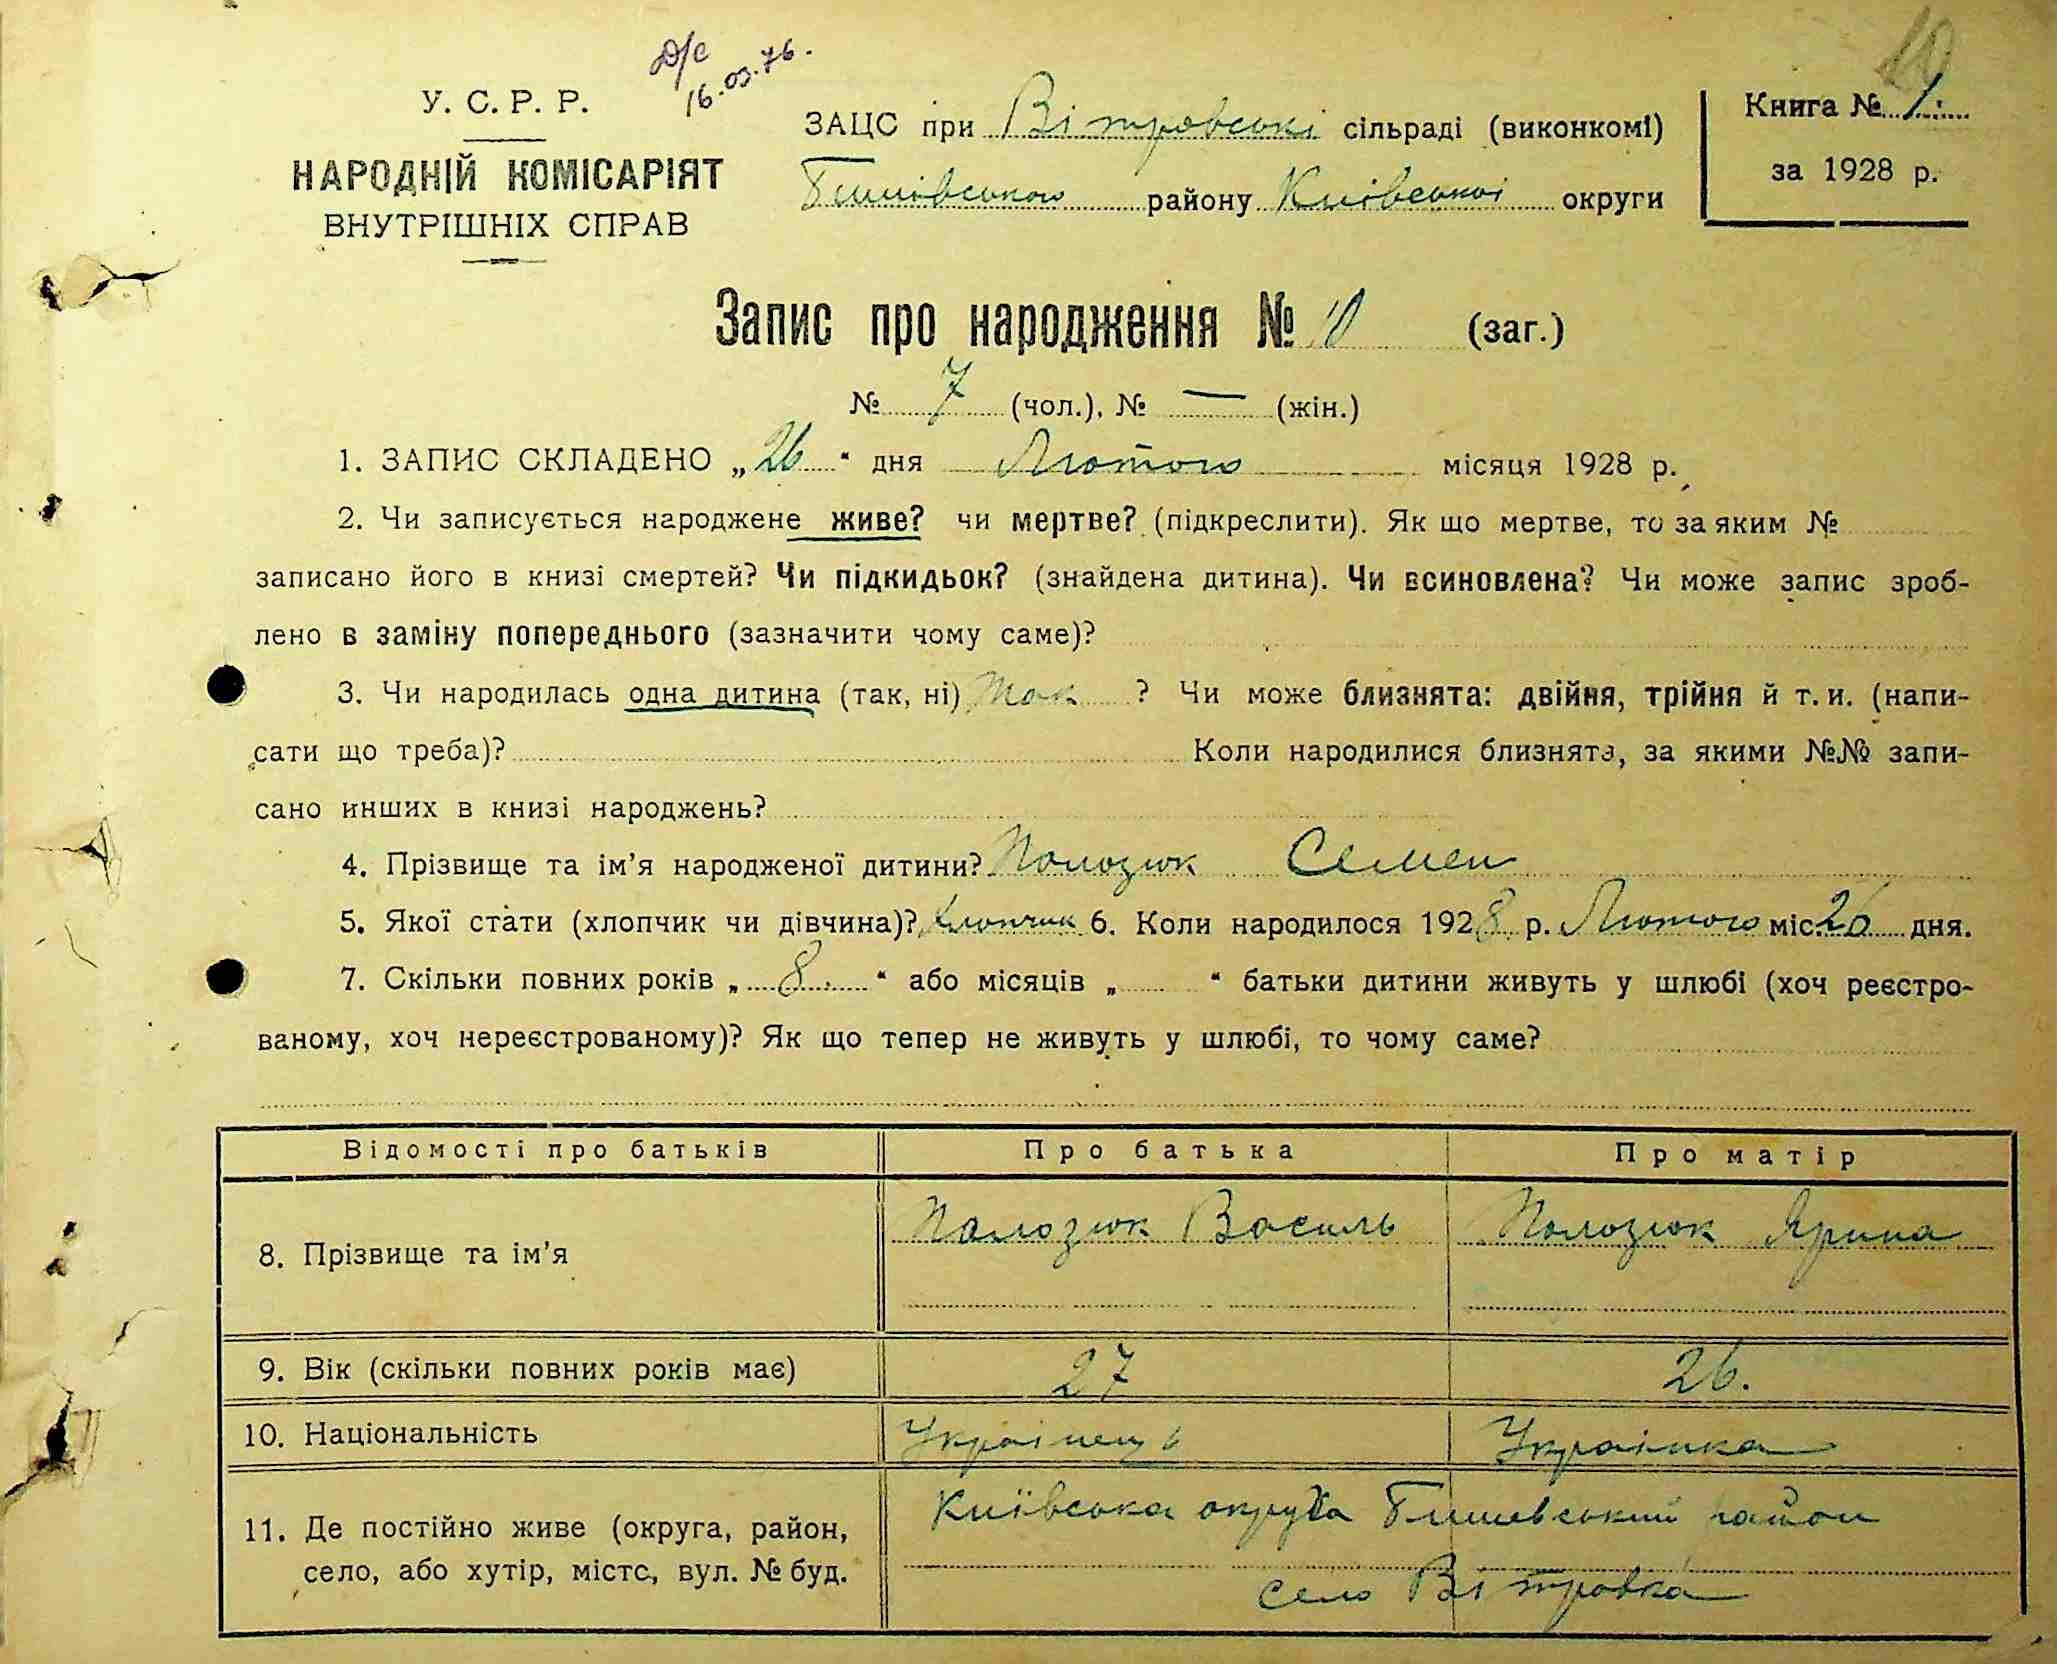 Д/с
16.03.76.
10
У. С. Р. Р.
НАРОДНІЙ КОМІСАРІЯТ
ВНУТРІШНІХ СПРАВ
ЗАЦС при Вітровські сільраді (виконкомі)
Бишівського району Київської округи
Книга № 1.
за 1928 р.
Запис про народження № 10 (заг.)
№ 7 (чол.), № — (жін.)
1. ЗАПИС СКЛАДЕНО „26“ дня Лютого місяця 1928 р.
2. Чи записується народжене живе? чи мертве? (підкреслити). Як що мертве, то за яким №
записано його в книзі смертей? Чи підкидьок? (знайдена дитина). Чи всиновлена? Чи може запис зроб-
лено в заміну попереднього (зазначити чому саме)?
3. Чи народилась одна дитина (так, ні) так ? Чи може близнята: двійня, трійня й т. и. (напи-
сати що треба)? Коли народилися близнята, за якими №№ запи-
сано инших в книзі народжень?
4. Прізвище та ім’я народженої дитини? Полозюк Семен
5. Якої стати (хлопчик чи дівчина)? Хлопчик 6. Коли народилося 1928 р. Лютого міс. 26 дня.
7. Скільки повних років „8.“ або місяців „ “ батьки дитини живуть у шлюбі (хоч реєстро-
ваному, хоч нереєстрованому)? Як що тепер не живуть у шлюбі, то чому саме?
Відомості про батьків Про батька Про матір
8. Прізвище та ім’я Полозюк Василь Полозюк Ярина
9. Вік (скільки повних років має) 27 26.
10. Національність Українець Українка
11. Де постійно живе (округа, район, Київська округа Бишевський район
село, або хутір, місте, вул. № буд. село Вітровка